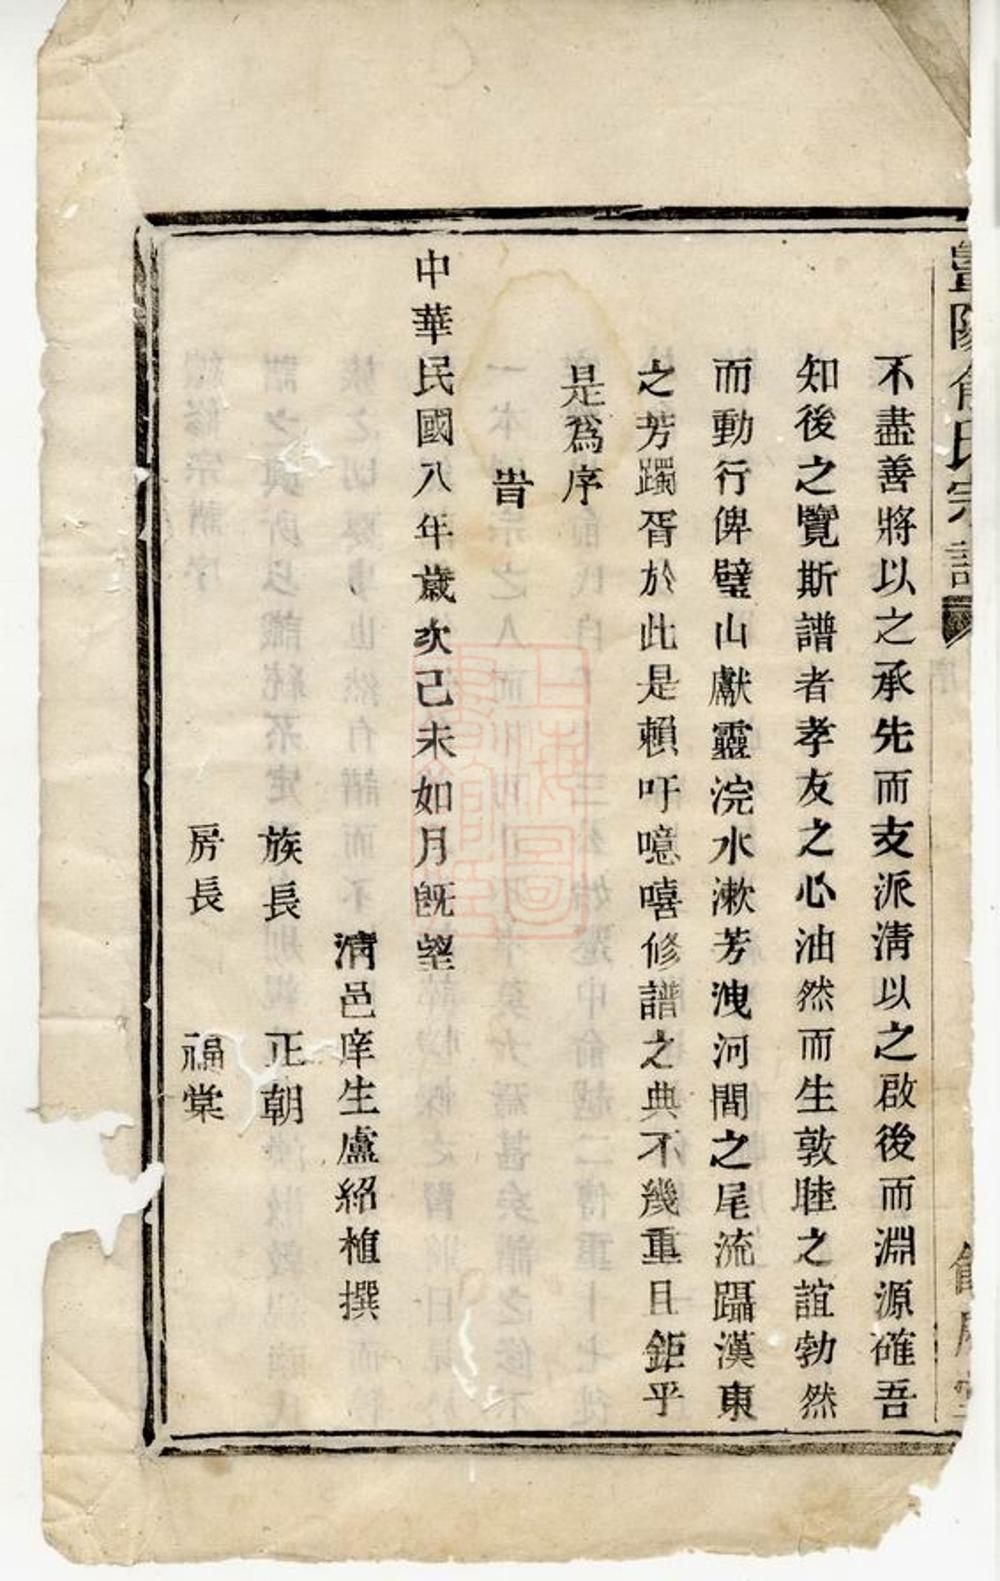 豐陽俞氏宗譜
不盡善將以之承先而支派淸以之啟後而淵源確吾
知後之覽斯譜者孝友之心油然而生敦睦之誼勃然
而動行俾璧山獻靈浣水漱芳洩河間之尾流躡漢東
之芳躅胥於此是賴吁噫嘻修譜之典不幾重且鉅乎
是爲序
旹
中華民國八年歲次己未如月旣望
淸邑庠生盧紹植撰
族長 正朝
房長 福棠